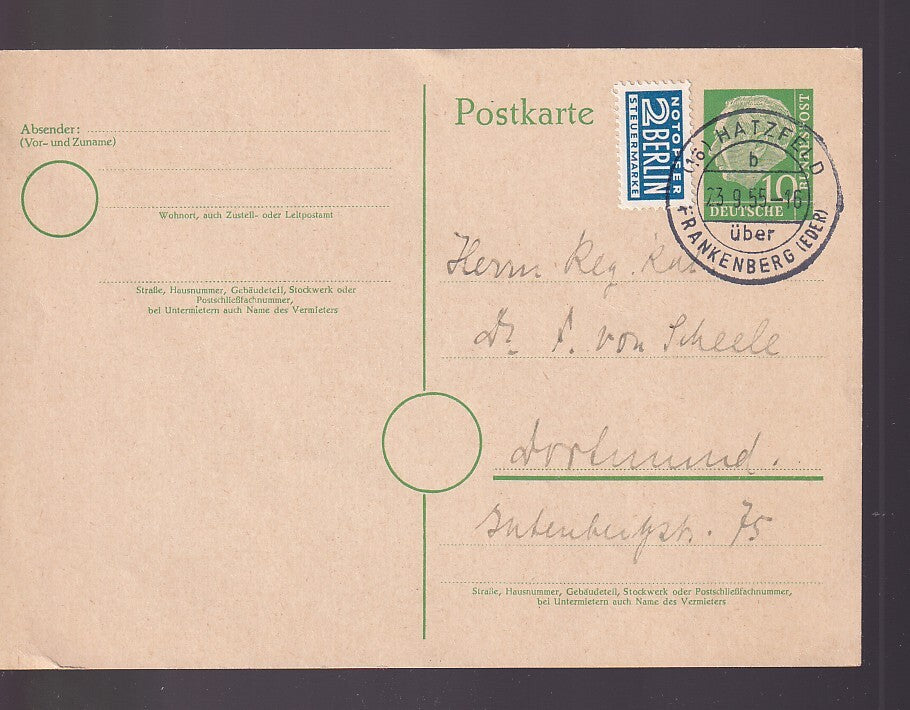 Absender:
(Vor- und Zuname)
Wohnort, auch Zustell- oder Leitpostamt
Straße, Hausnummer, Gebäudeteil, Stockwerk oder
Postschließfachnummer,
bei Untermietern auch Name des Vermieters
Postkarte
NOTOPFER
2 BERLIN
STEUERMARKE
DEUTSCHE
BUNDESPOST
10
(16) HATZFELD
b
23.9.55-16
über
FRANKENBERG (EDER)
Herrn Reg.
Dr. von Scheele
Dortmund.
Gutenbergstr. 75
Straße, Hausnummer, Gebäudeteil, Stockwerk oder Postschließfachnummer,
bei Untermietern auch Name des Vermieters